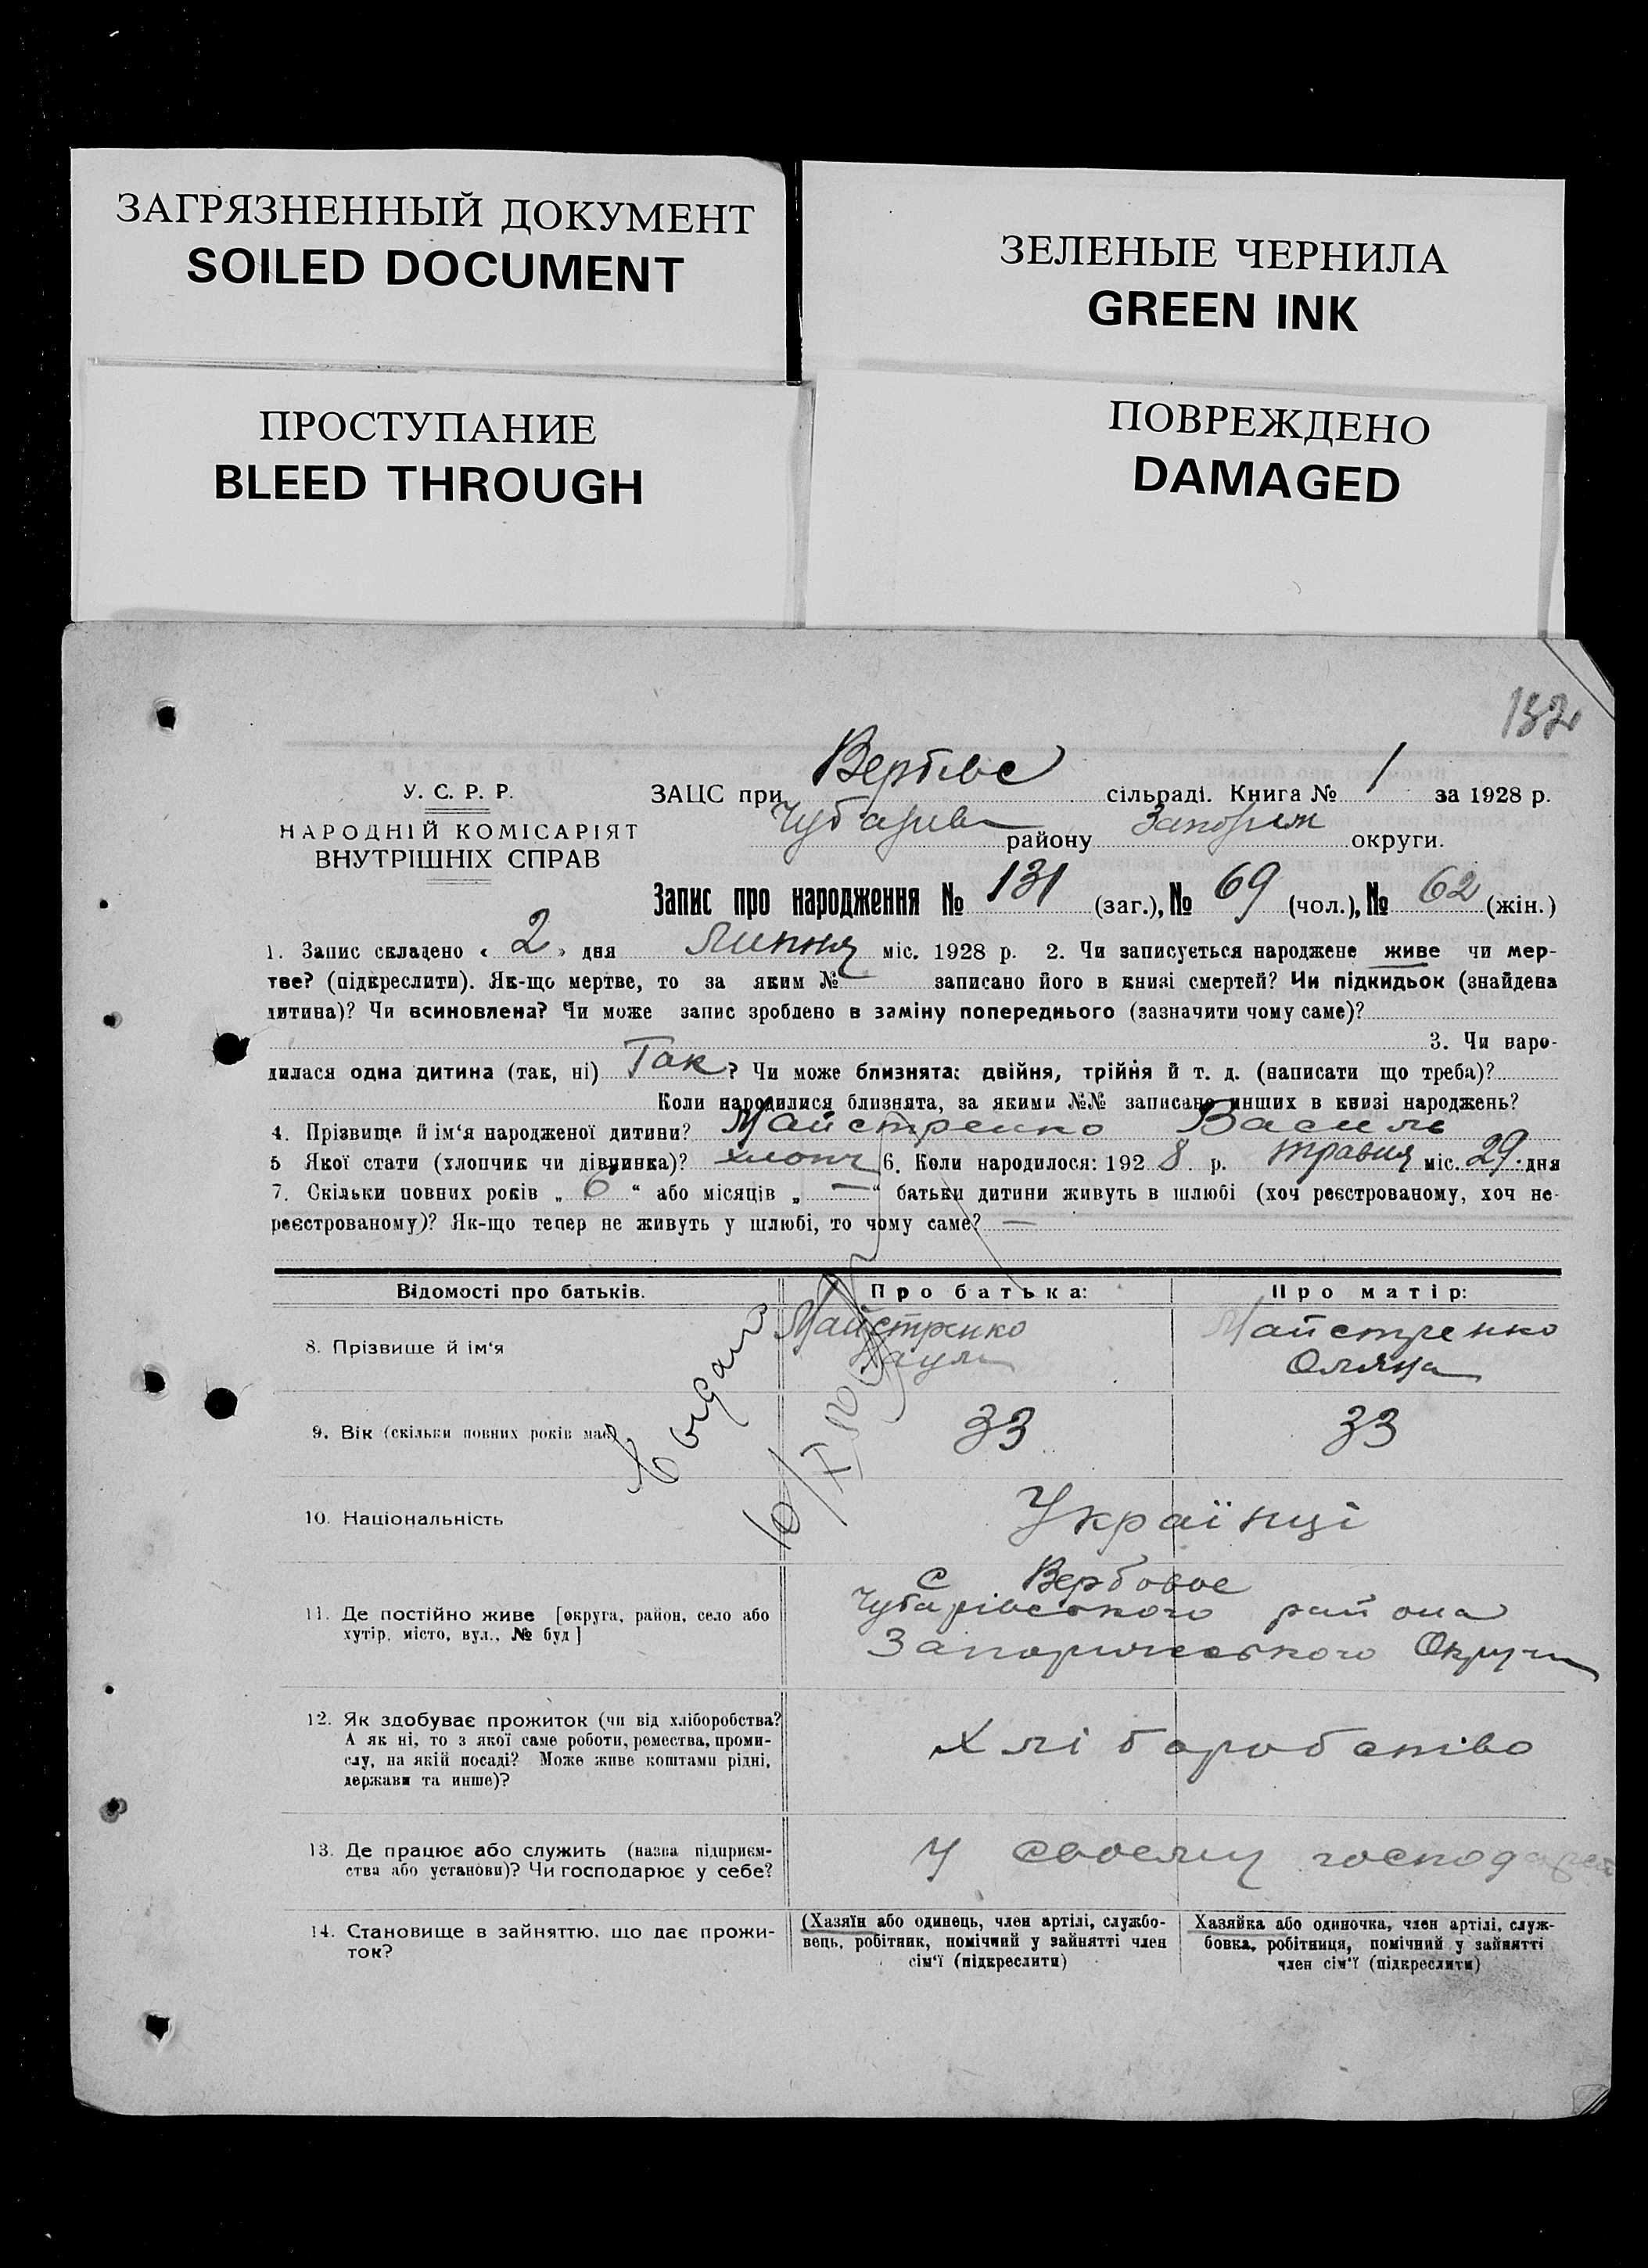 ЗАГРЯЗНЕННЫЙ ДОКУМЕНТ
SOILED DOCUMENT
ЗЕЛЕНЫЕ ЧЕРНИЛА
GREEN INK
ПРОСТУПАНИЕ
BLEED THROUGH
ПОВРЕЖДЕНО
DAMAGED
У. С. Р. Р.
НАРОДНІЙ КОМІСАРІЯТ
ВНУТРІШНІХ СПРАВ
ЗАЦС при сільраді. Книга № 1 за 1928 р.
району Запоріж округи.
Запис про народження № 131 (заг.), № 69 (чол.), № 62 (жін.)
1. Запис складено « 2 » дня Липня міс. 1928 р. 2. Чи записується народжене живе чи мер-
тве? (підкреслити). Як-що мертве, то за яким № записано його в книзі смертей? Чи підкидьок (знайдена
дитина)? Чи всиновлена? Чи може запис зроблено в заміну попереднього (зазначити чому саме)?
3. Чи наро-
дилася одна дитина (так, ні) Так ? Чи може близнята: двійня, трійня й т. д. (написати що треба)?
Коли народилися близнята, за якими №№ записано инших в книзі народжень?
4. Прізвище й ім‘я народженої дитини? Майстренко Василь
5 Якої стати (хлопчик чи дівчинка)? хлопч 6. Коли народилося: 192 8 р. травня міс. 29 дня
7. Скільки повних років „ 6 “ або місяців „ — “ батьки дитини живуть в шлюбі (хоч реєстрованому, хоч не-
реєстрованому)? Як-що тепер не живуть у шлюбі, то чому саме? —
Відомості про батьків. Про батька: Про матір:
8. Прізвище й ім‘я Майстренко Майстренко
Оляна
9. Вік (скільки повних років має) 33 33
10. Національність Українці
11. Де постійно живе [округа, район, село або
хутір, місто, вул., № буд]
С Вербовое
Чубарівського района
Запорижского Округи
12. Як здобуває прожиток (чи від хліборобства?
А як ні, то з якої саме роботи, ремества, проми-
слу, на якій посаді? Може живе коштами рідні,
держави та инше)?
Хліборобство
13. Де працює або служить (назва підприєм-
ства або установи)? Чи господарює у себе?
У своему
14. Становище в зайняттю, що дає прожи-
ток?
(Хазяїн або одинець, член артілі, службо-
вець, робітник, помічний у зайнятті член
сім‘ї (підкреслити)
Хазяйка або одиночка, член артілі, служ-
бовка, робітниця, помічний у зайнятті
член сім‘ї (підкреслити)